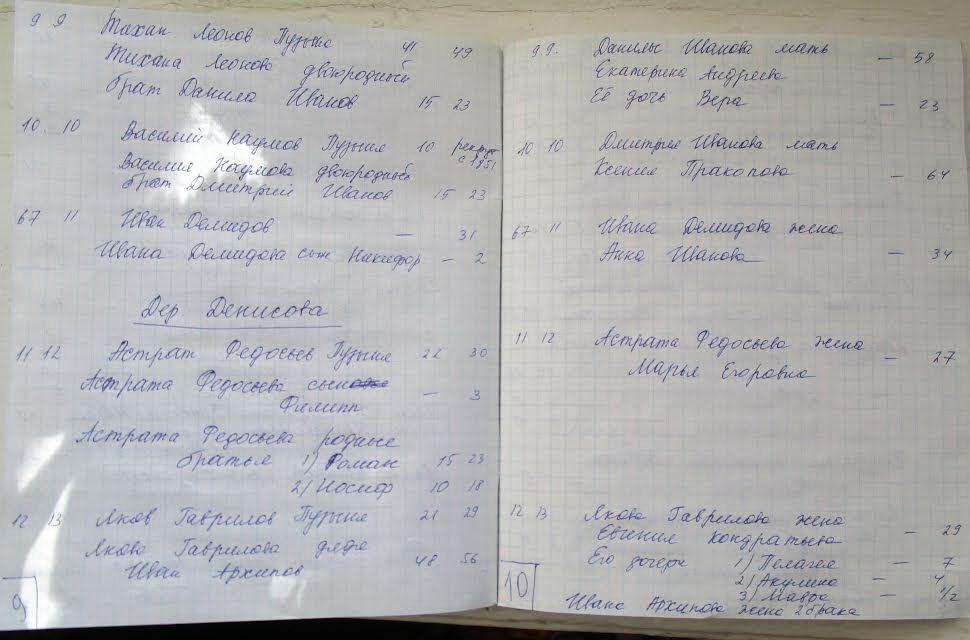 9 9 Тихан Леонов Пузыня 41 49
Тихана Леонова двоюродный
брат Данила Иванов 15 23
10. 10 Василий Наумов Пузыня 10 рекрут
с 1851
Василия Наумова двоюродный
брат Дмитрий Иванов 15 23
67 11 Иван Демидов — 31
Ивана Демидова сын Никифор — 2
Дер. Денисова
11 12 Астрат Федосьев Пузыня 22 30
Астрата Федосьева сын
Филипп — 3
Астрата Федосьева родные
братья 1) Роман 15 23
2) Иосиф 10 18
12 13 Яков Гаврилов Пузыня 21 29
Якова Гаврилова дядя
Иван Архипов 48 56
9
9 9. Данилы Иванова мать — 58
Екатерина Андреева
Её дочь Вера — 23
10 10 Дмитрия Иванова мать
Ксения Пракопова — 64
67 11 Ивана Демидова жена
Анна Иванова — 34
11 12 Астрата Федосьева жена
Марья Егоровна — 27
12 13 Якова Гаврилова жена
Евгения Кондратьева — 29
Его дочери 1) Пелагея — 7
2) Акулина — 4
3) Мавра — 1/2
Ивана Архипова жена 2 брака
10